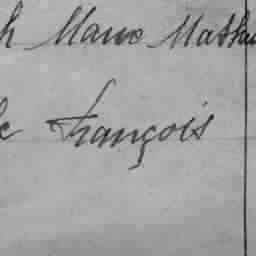 h Marie Mathu
e François